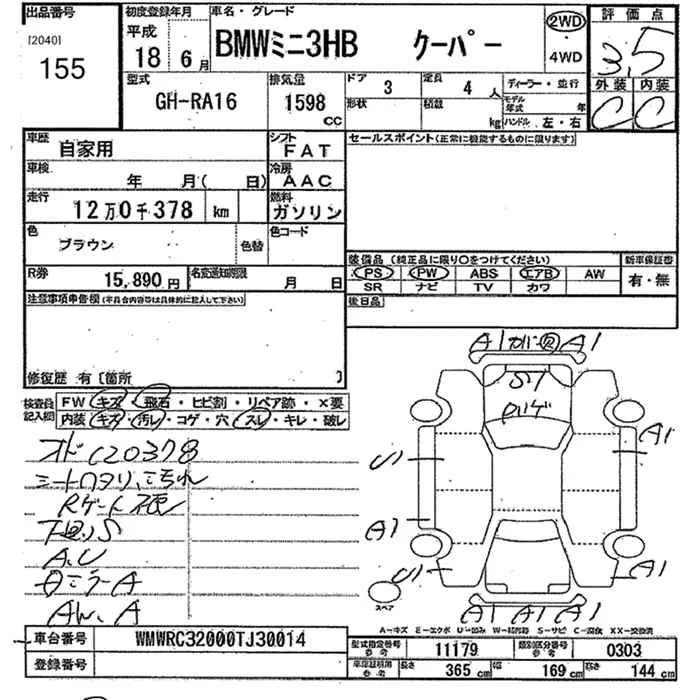 出品番号 初度登録年月 車名・グレード 2WD 評価点
[2040] 平成 BMWミニ3HB クーパー ・ 3.5
155 18 年 6 月 4WD
型式 排気量 ドア 3 定員 4 人 ディーラー・並行 外装 内装
GH-RA16 1598 cc 形状 積載 kg モデル年式 年 C C
ハンドル 左・右
車歴 自家用 シフト FAT セールスポイント(正常に機能するものに限ります)
車検 年 月( 日) 冷房 AAC
走行 12万0千378 km 燃料 ガソリン
色 ブラウン 色替 色コード
装備品 (純正品に限り○をつけてください) 新車保証書
R券 15,890円 名変通知期限 月 日 PS PW ABS エアB AW 有・無
SR ナビ TV カワ
注意事項申告欄 後日品
修復歴 有 [箇所 ]
検査員記入欄 FW キズ・飛石・ヒビ割・リペア跡・×要
内装 キズ・汚レ・コゲ・穴・スレ・キレ・破レ
A1 A1
オドC20378
A1
Rゲート
A1
A.U
A1
ミラーA
スペア
AW.A
A1 A1 A1
A-キズ E-エクボ U-凹み W-補修跡 S-サビ C-腐食 XX-交換済
車台番号 WMWRC32000TJ30014 型式指定番号 参考 11179 類別区分番号 参考 0303
登録番号 車庫証明用 参考 長さ 365 cm 幅 169 cm 高さ 144 cm